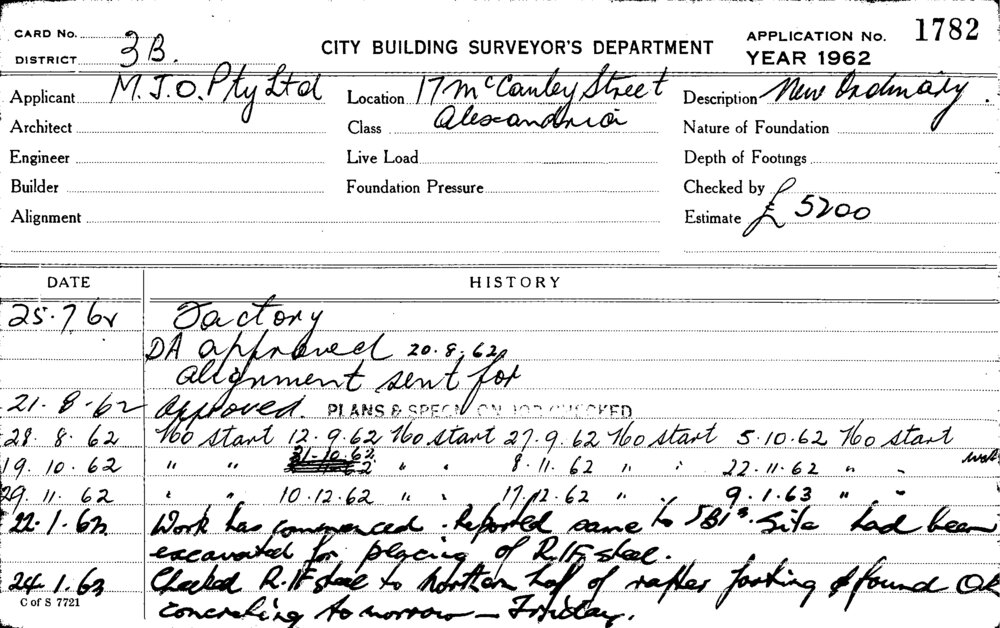 CARD No.
CITY BUILDING SURVEYOR'S DEPARTMENT
APPLICATION No. 1782
DISTRICT 3B.
YEAR 1962
Applicant M.J.O. Pty Ltd
Location 17 McCauley Street
Description New Ordinary.
Architect
Class Alexandria
Nature of Foundation
Engineer
Live Load
Depth of Footings
Builder
Foundation Pressure
Checked by
Alignment
Estimate £5200
DATE HISTORY
25.7.62 Factory
DA approved 20.8.62
alignment sent for
21-8-62 Approved. PLANS & SPECN ON JOB CHECKED
28.8.62 No start 12.9.62 No start 27.9.62 No start 5.10.62 No start
19.10.62 " " 31-10.62 " " 8.11.62 " " 22.11.62 " "
29.11.62 " " 10.12.62 " " 17.12.62 " " 9.1.63 " "
22.1.63 Work has commenced. Reported same to Site had been
excavated for placing of R.IF steel.
24.1.63 Checked R.IF steel to Northern half of rafter footing & found OK
C of S 7721
concreting tomorrow – Friday.